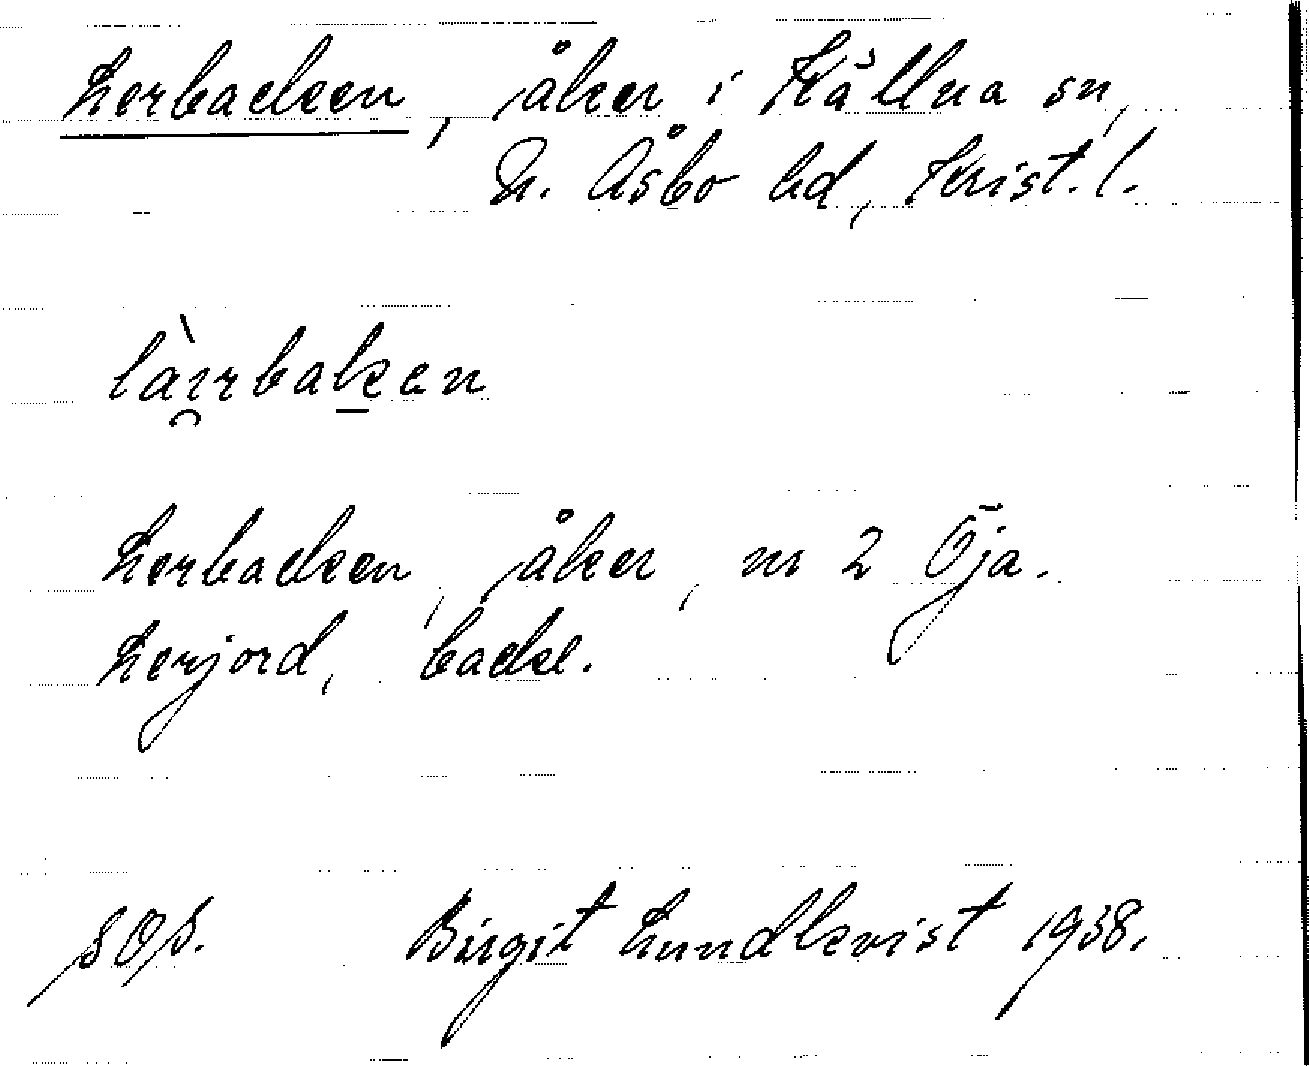 Lerbacken, åker i Källna sn,
N. Åsbo hd, Krist. l.
làırbaken
Lerbacken, åker, nr 2 Öja.
Lerjord, backe.
Birgit Lundkvist 1938.